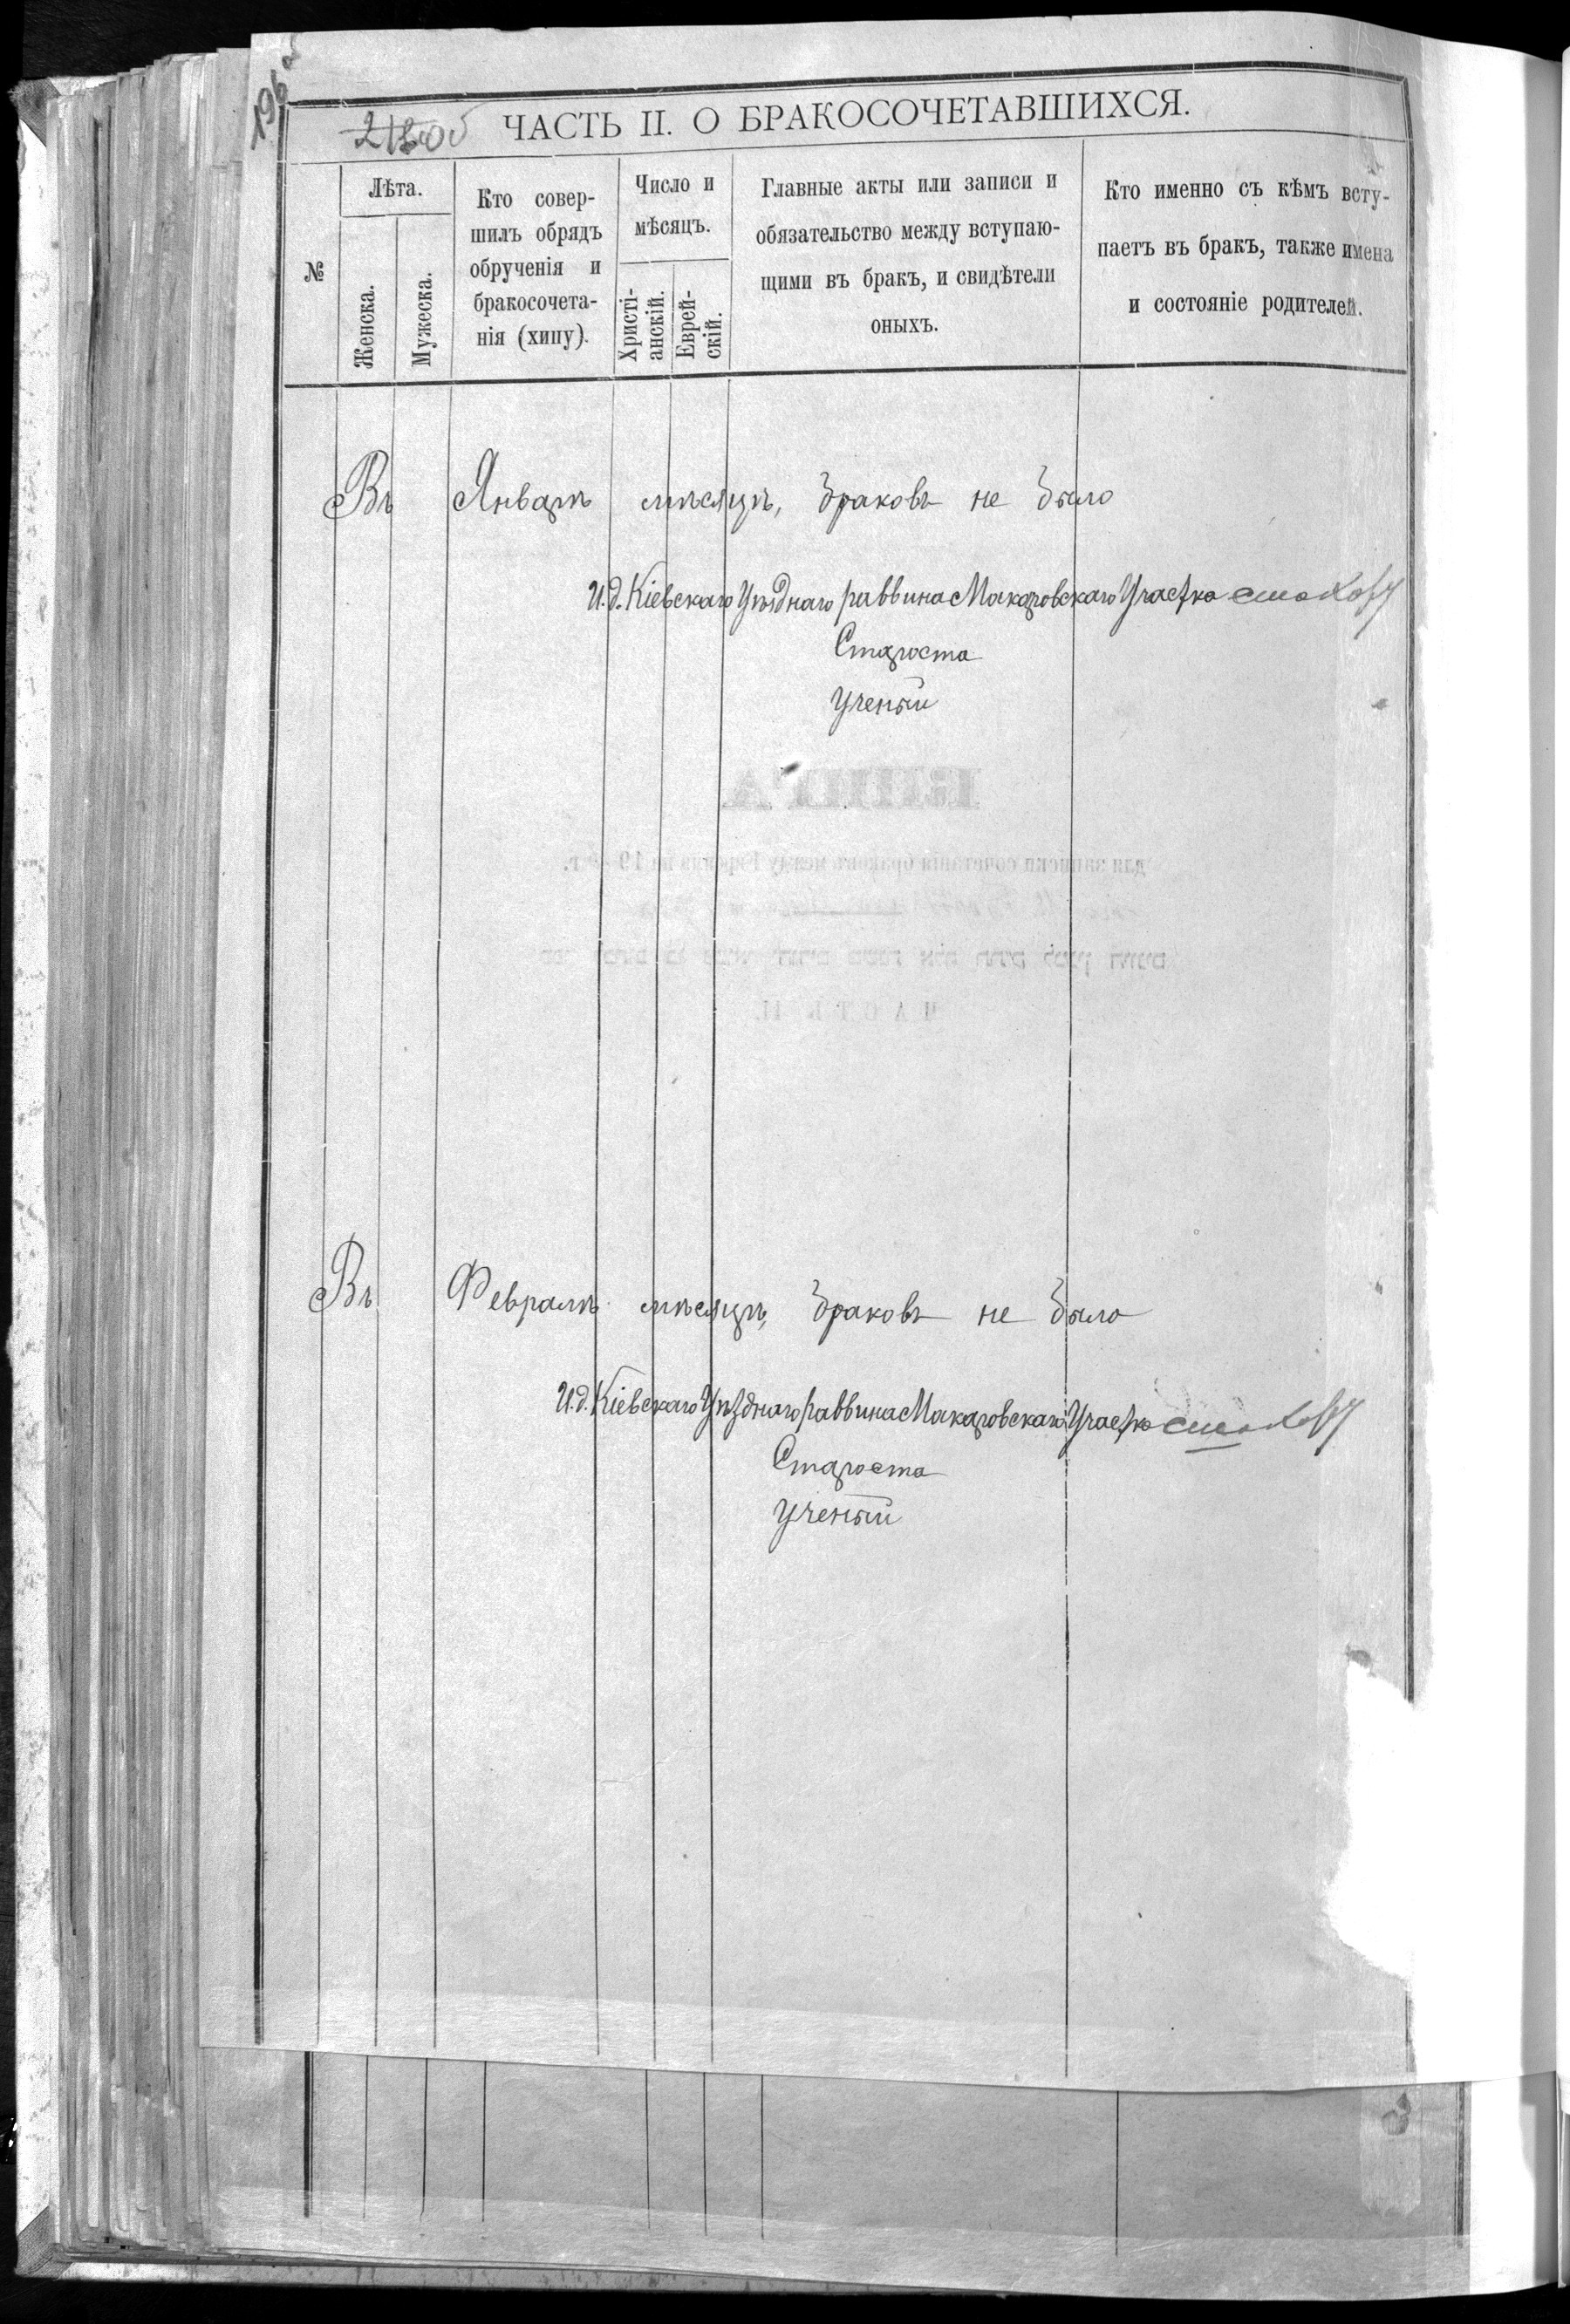 ЧАСТЬ II. О БРАКОСОЧЕТАВШИХСЯ.
№
Лѣта.
Женска.
Мужеска.
Кто совер-
шилъ обрядъ
обрученія и
бракосочета-
нія (хипу).
Число и
мѣсяцъ.
Христі-
анскій.
Еврей-
скій.
Главные акты или записи и
обязательство между вступаю-
щими въ бракъ, и свидѣтели
оныхъ.
Кто именно съ кѣмъ всту-
паетъ въ бракъ, также имена
и состояніе родителей.
Въ Январѣ мѣсяцѣ, браковъ не было
И.д. Кіевскаго Уѣзднаго раввина Макаровскаго Участка
Староста
Ученый
КНИГА
для записки сочетанія браковъ между Евреями на 19 г.
ЧАСТЬ II.
Въ Февралѣ мѣсяцѣ, браковъ не было
И.д. Кіевскаго Уѣзднаго раввина Макаровскаго Участка
Староста
Ученый